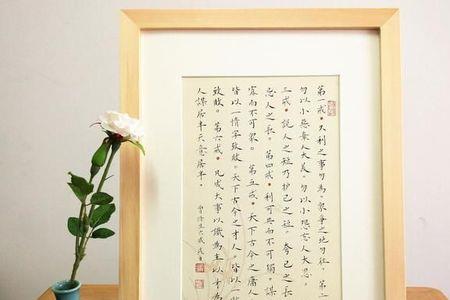 第一戒。久利之事勿為，眾爭之地勿往。第二
勿以小惡棄人大美，勿以小怨忘人大恩。
三戒。說人之短乃护己之短，夸己之長
忌人之長。第四戒。利可共而不可獨，謀
寡而不可眾。第五戒。天下古今之庸人
皆以一惰字致敗。天下古今之才人皆以一
致敗。第六戒。凡成大事以識為主以才為
人謀居半天意居半。
六戒